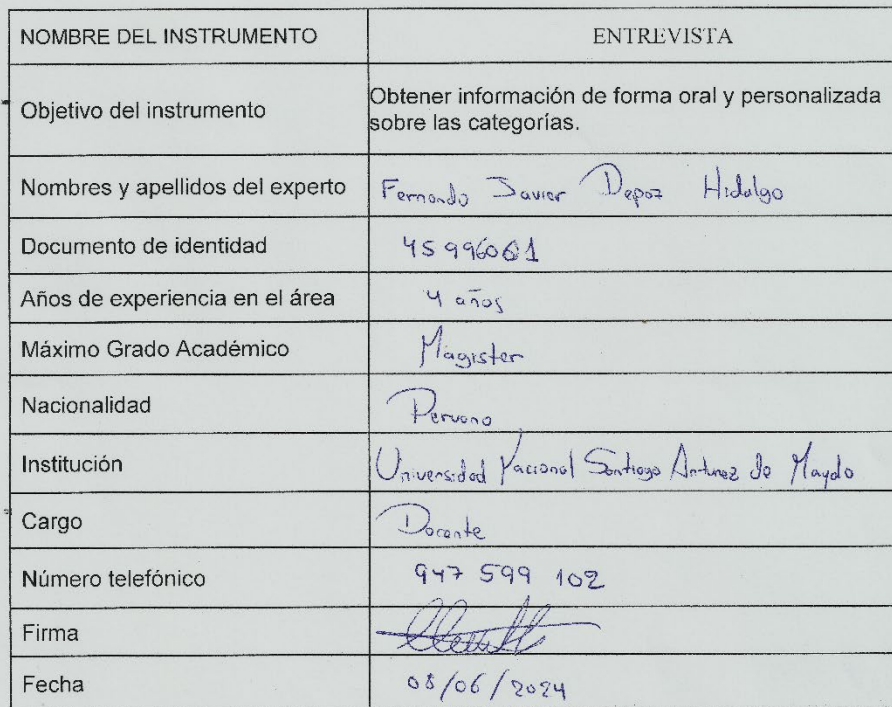 NOMBRE DEL INSTRUMENTO ENTREVISTA
Objetivo del instrumento Obtener información de forma oral y personalizada
sobre las categorías.
Nombres y apellidos del experto Fernando Javier Depaz Hidalgo
Documento de identidad 45996061
Años de experiencia en el área 4 años
Máximo Grado Académico Magister
Nacionalidad Peruano
Institución Universidad Nacional Santiago Antunez de Mayolo
Cargo Docente
Número telefónico 947 599 102
Firma
Fecha 08/06/2024